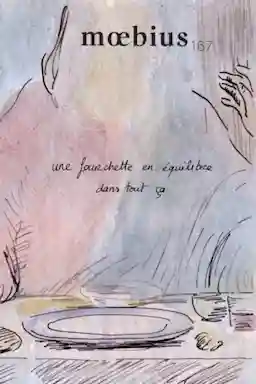 mœbius
167
une fourchette en équilibre
dans tout ça